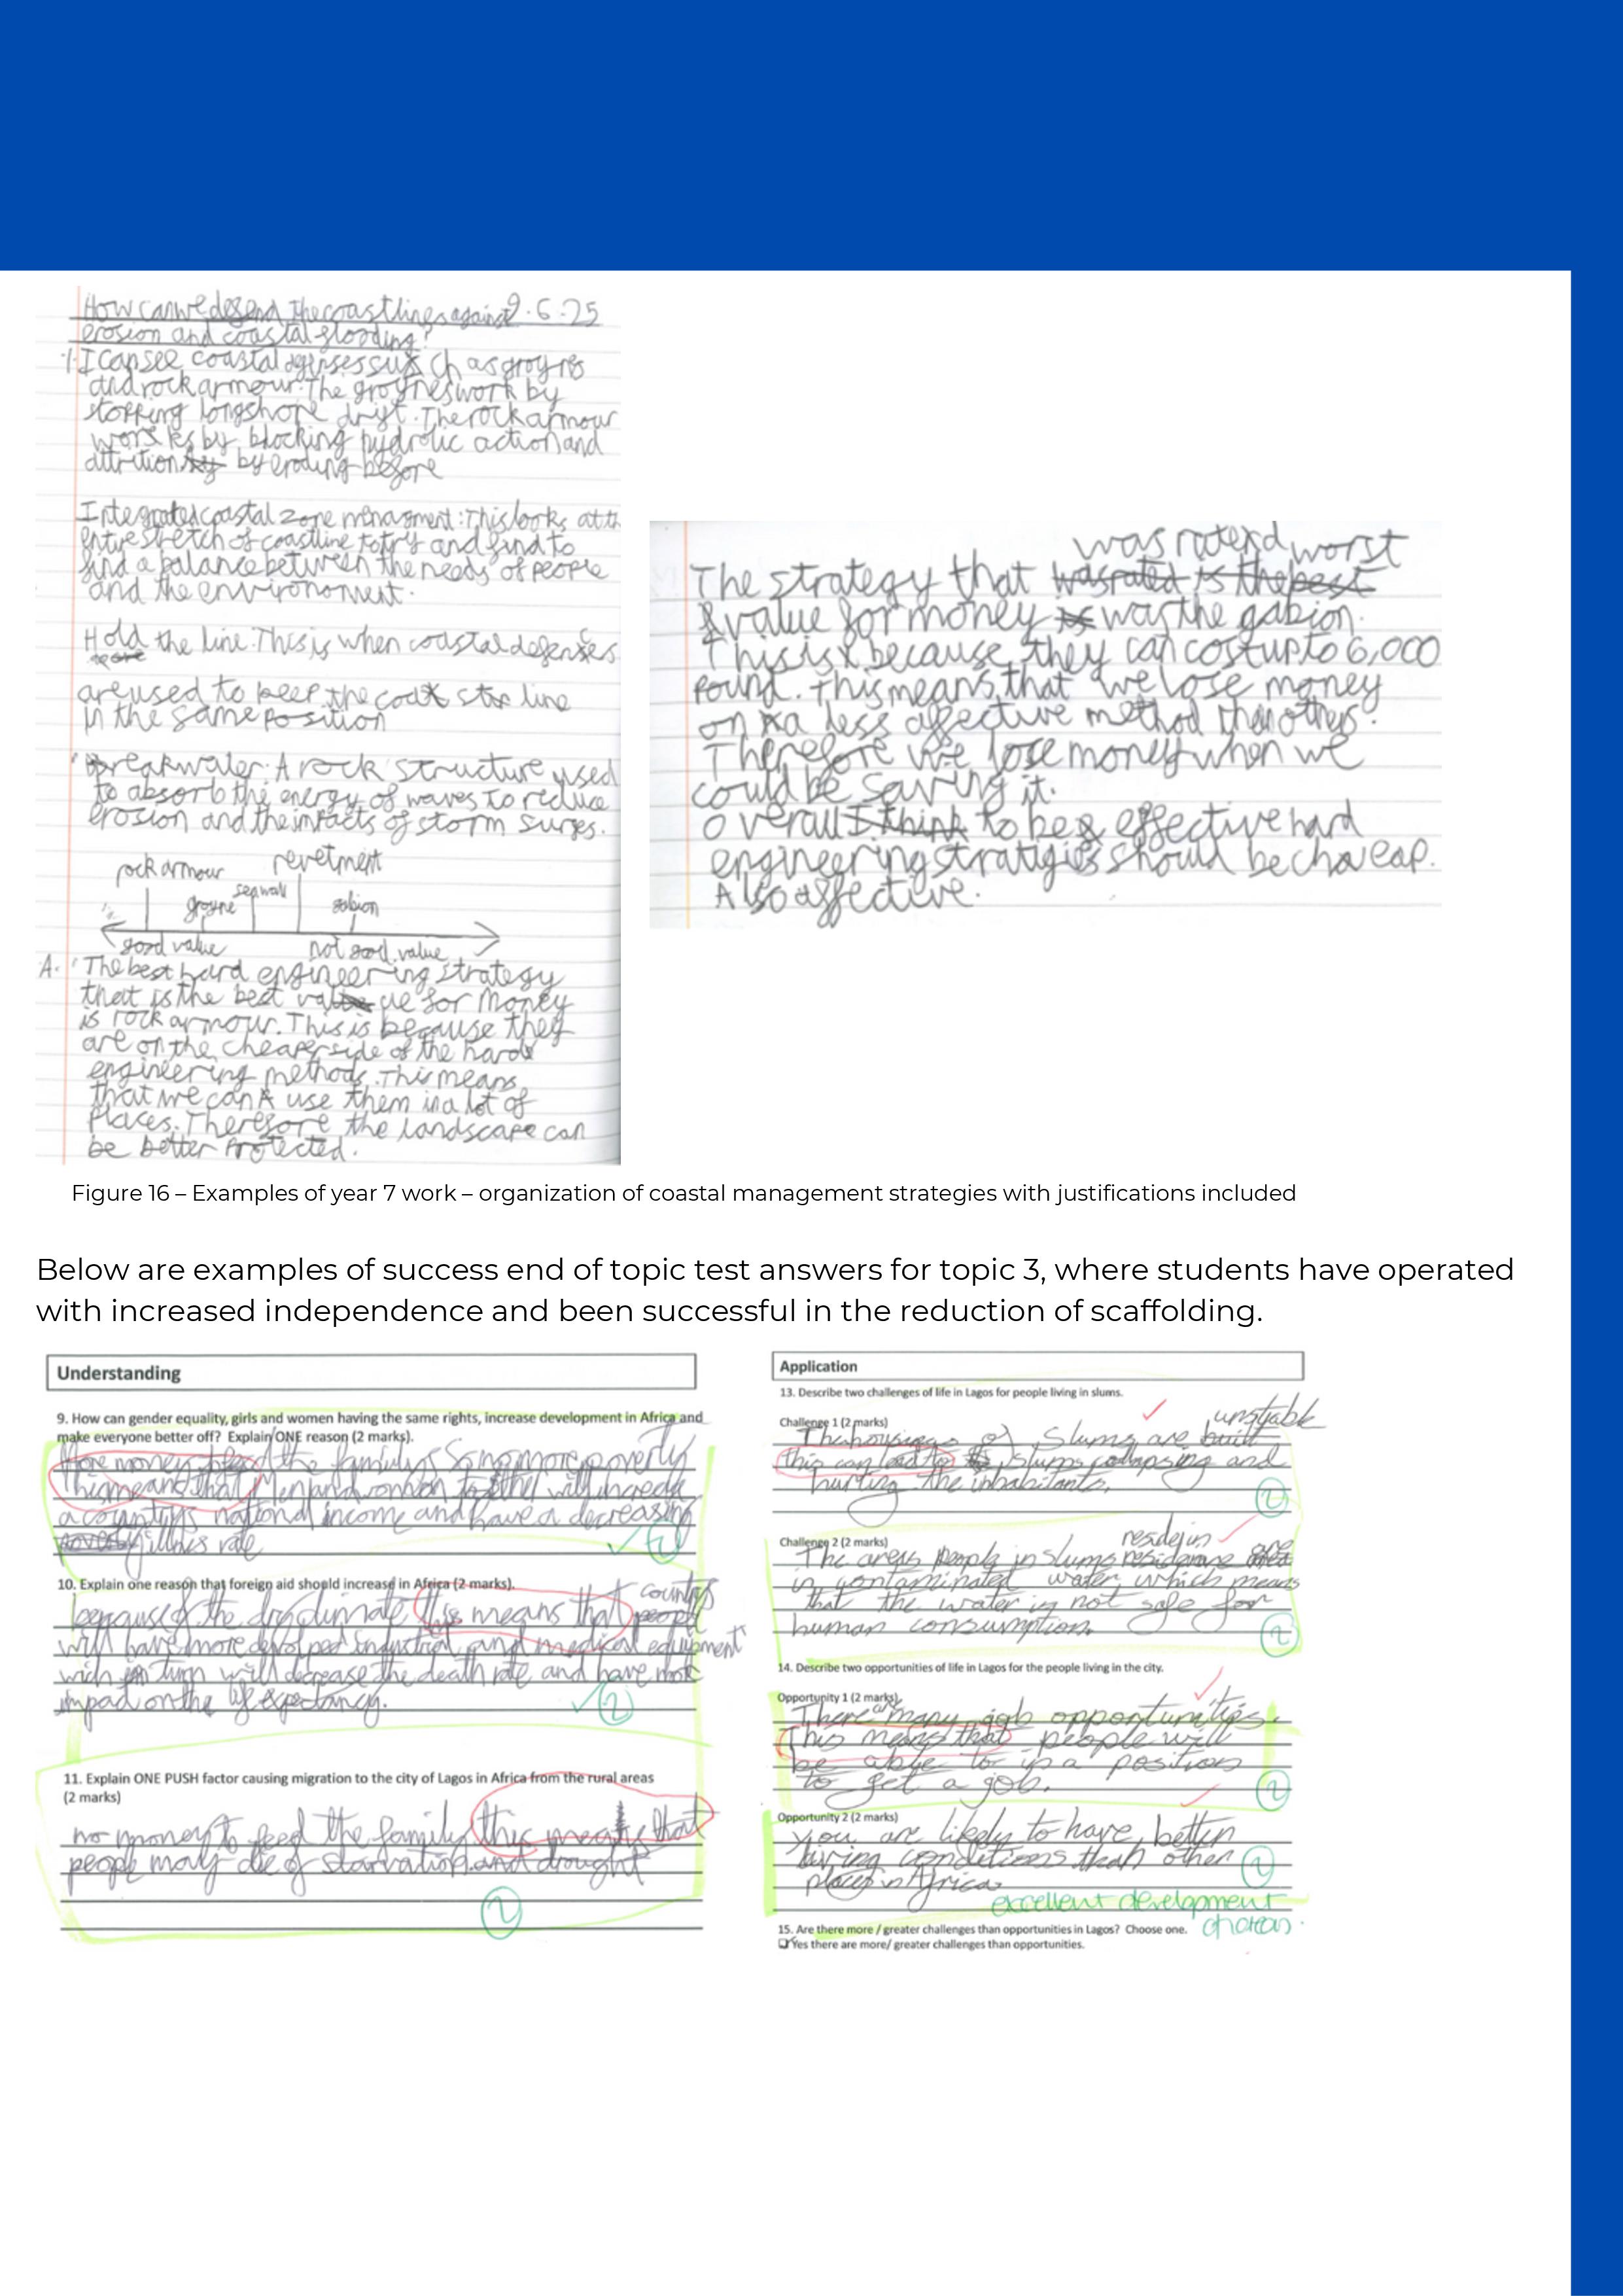 How can we defend the coastlines against 9.6.25
erosion and coastal flooding?
1. I can see coastal defenses such as groynes
and rock armour. The groynes work by
stopping longshore drift. The rock armour
works by blocking hydrolic action and
attrition by eroding before
Integrated coastal zone managment: This looks at th
entire stretch of coastline to try and find to
find a balance between the needs of people
and the environoment.
Hold the line: This is when coastal defenses
are used to keep the coat line
in the same position
Breakwater: A rock structure used
to absorb the energy of waves to reduce
erosion and the impacts of storm surges.
rock armour revetment
groyne seawall gabion
good value not good value
A. The best hard engineering strategy
that is the best value for money
is rock armour. This is because they
are on the cheaper side of the hard
engineering methods. This means
that we can use them in a lot of
places. Therefore the landscape can
be better protected.
was rated worst
The strategy that was rated is the best
value for money is was the gabion.
This is because they can cost up to 6,000
pound. This means that we lose money
on a less affective method than others.
Therefore we lose money when we
could be saving it.
overall I think to be effective hard
engineering stratigies should be cheap.
Also affective.
Figure 16 – Examples of year 7 work – organization of coastal management strategies with justifications included
Below are examples of success end of topic test answers for topic 3, where students have operated
with increased independence and been successful in the reduction of scaffolding.
Understanding
9. How can gender equality, girls and women having the same rights, increase development in Africa and
make everyone better off? Explain ONE reason (2 marks).
More money the family so no more poverty
This means that Men and woman together will increase
a countrys national income and have a decreasing
illnes rate
2
10. Explain one reason that foreign aid should increase in Africa (2 marks).
because of the dry climate, this means that countrys people
will have more devolped industrial and medical equipment
wich in turn will decrease the death rate and have more
impact on the life expectancy.
2
11. Explain ONE PUSH factor causing migration to the city of Lagos in Africa from the rural areas
(2 marks)
no money to feed the family this means that
people may die of starvation and drought
2
Application
13. Describe two challenges of life in Lagos for people living in slums.
Challenge 1 (2 marks)
unstyable
The housings of slums are built
this can lead to slums collapsing and
hurting the inhabitants.
2
Challenge 2 (2 marks)
resdej in are
The areas people in slums
in contaminated water which means
that the water is not safe for
human consumption.
2
14. Describe two opportunities of life in Lagos for the people living in the city.
Opportunity 1 (2 marks)
There are many job opportunities.
This means that people will
be able to in a position
to get a job.
2
Opportunity 2 (2 marks)
you are likely to have better
living conditions than other
places in Africa.
2
excellent development
15. Are there more / greater challenges than opportunities in Lagos? Choose one.
Yes there are more/ greater challenges than opportunities.